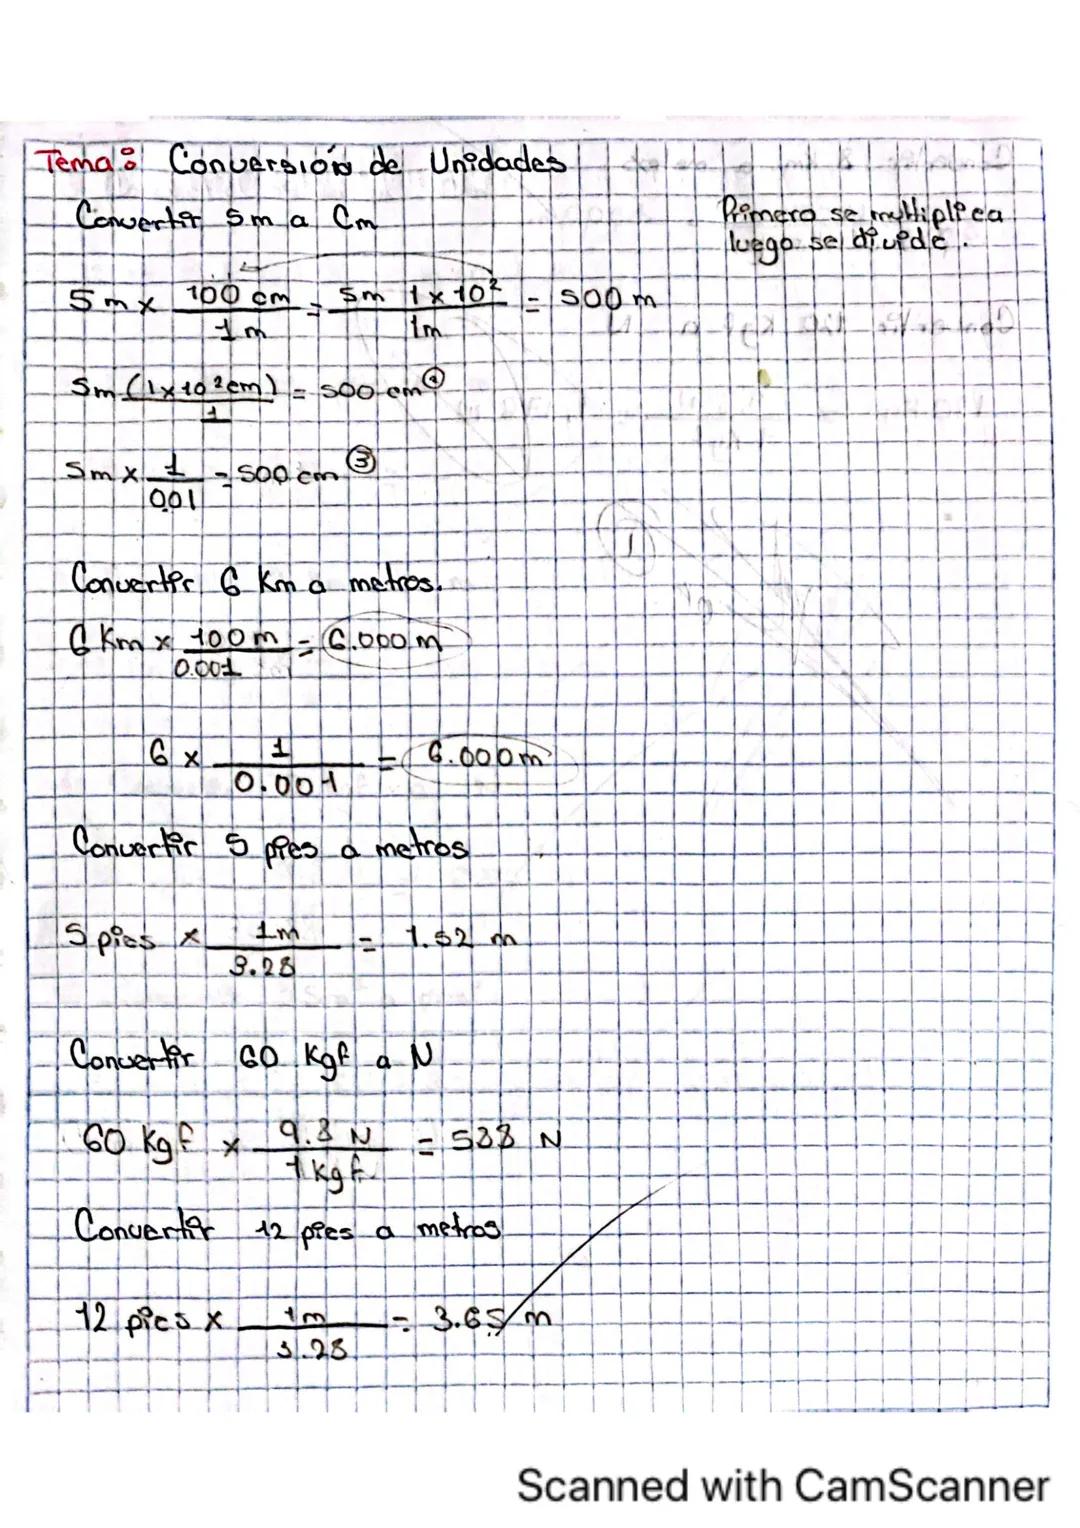 Tema: Conversión de Unidades
Convertir 5m a Cm
Primero se multiplica
luego se divide.
5m x 100 cm / 1m = 5m 1x10² / 1m = 500 m
5m (1x10²cm) / 1 = 500 cm ④
5m x 1 / 0.01 = 500 cm ③
Convertir 6 Km a metros.
6 Km x 100m / 0.001 = 6.000 m
6 x 1 / 0.001 = 6.000m
Convertir 5 pies a metros
5 pies x 1m / 3.28 = 1.52 m
Convertir 60 Kgf a N
60 Kgf x 9.8 N / 1 Kgf = 588 N
Convertir 12 pies a metros
12 pies x 1m / 3.28 = 3.65 m
Scanned with CamScanner